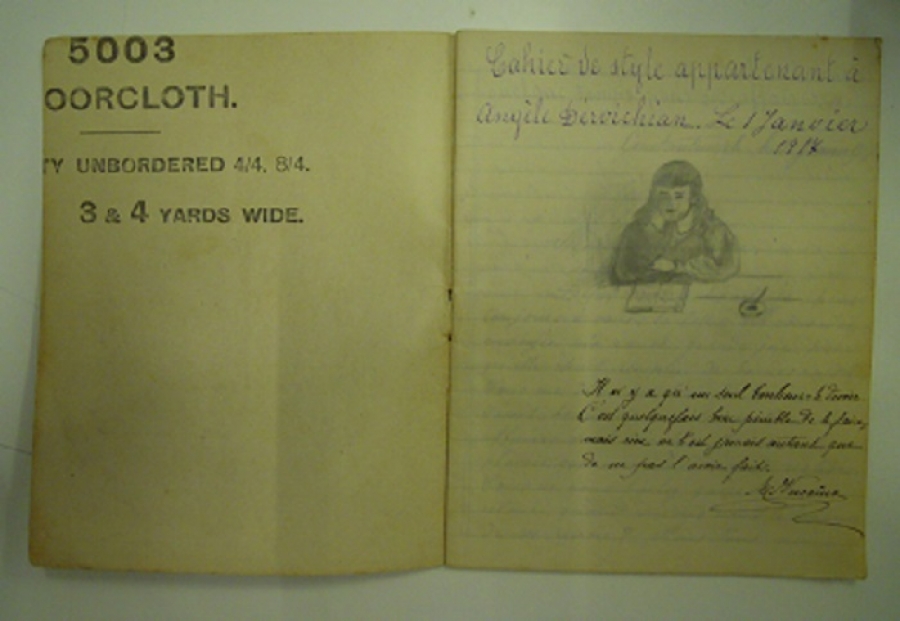 5003
OORCLOTH.
TY UNBORDERED 4/4, 8/4.
3 & 4 YARDS WIDE.
Cahier de style appartenant à
Angèle Dervichian. Le 1 Janvier
1917
Il n'y a qu'un seul bonheur: le devoir
C'est quelquefois bien pénible de le faire,
mais rien ne l'est jamais autant que
de ne pas l'avoir fait.